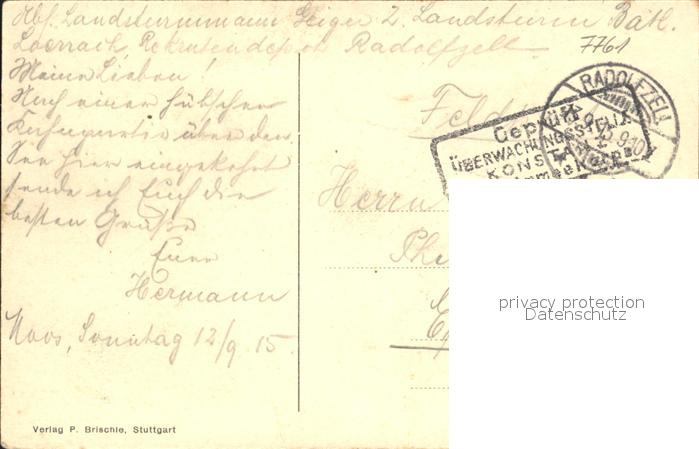 Abs. Landsturmmann Geiger 2. Landsturm Batl.
Loerrach, Rekrutendepot Radolfzell
7761
Meine Lieben!
Nach einer hübschen
über den
See hier eingekehrt
sende ich Euch die
besten Grüße
Euer
Hermann
Moos, Sonntag 12/9 15.
Verlag P. Brischle, Stuttgart
RADOLFZELL
Geprüft
ÜBERWACHUNGSSTELLE
KONSTANZ
Herrn
privacy protection
Datenschutz